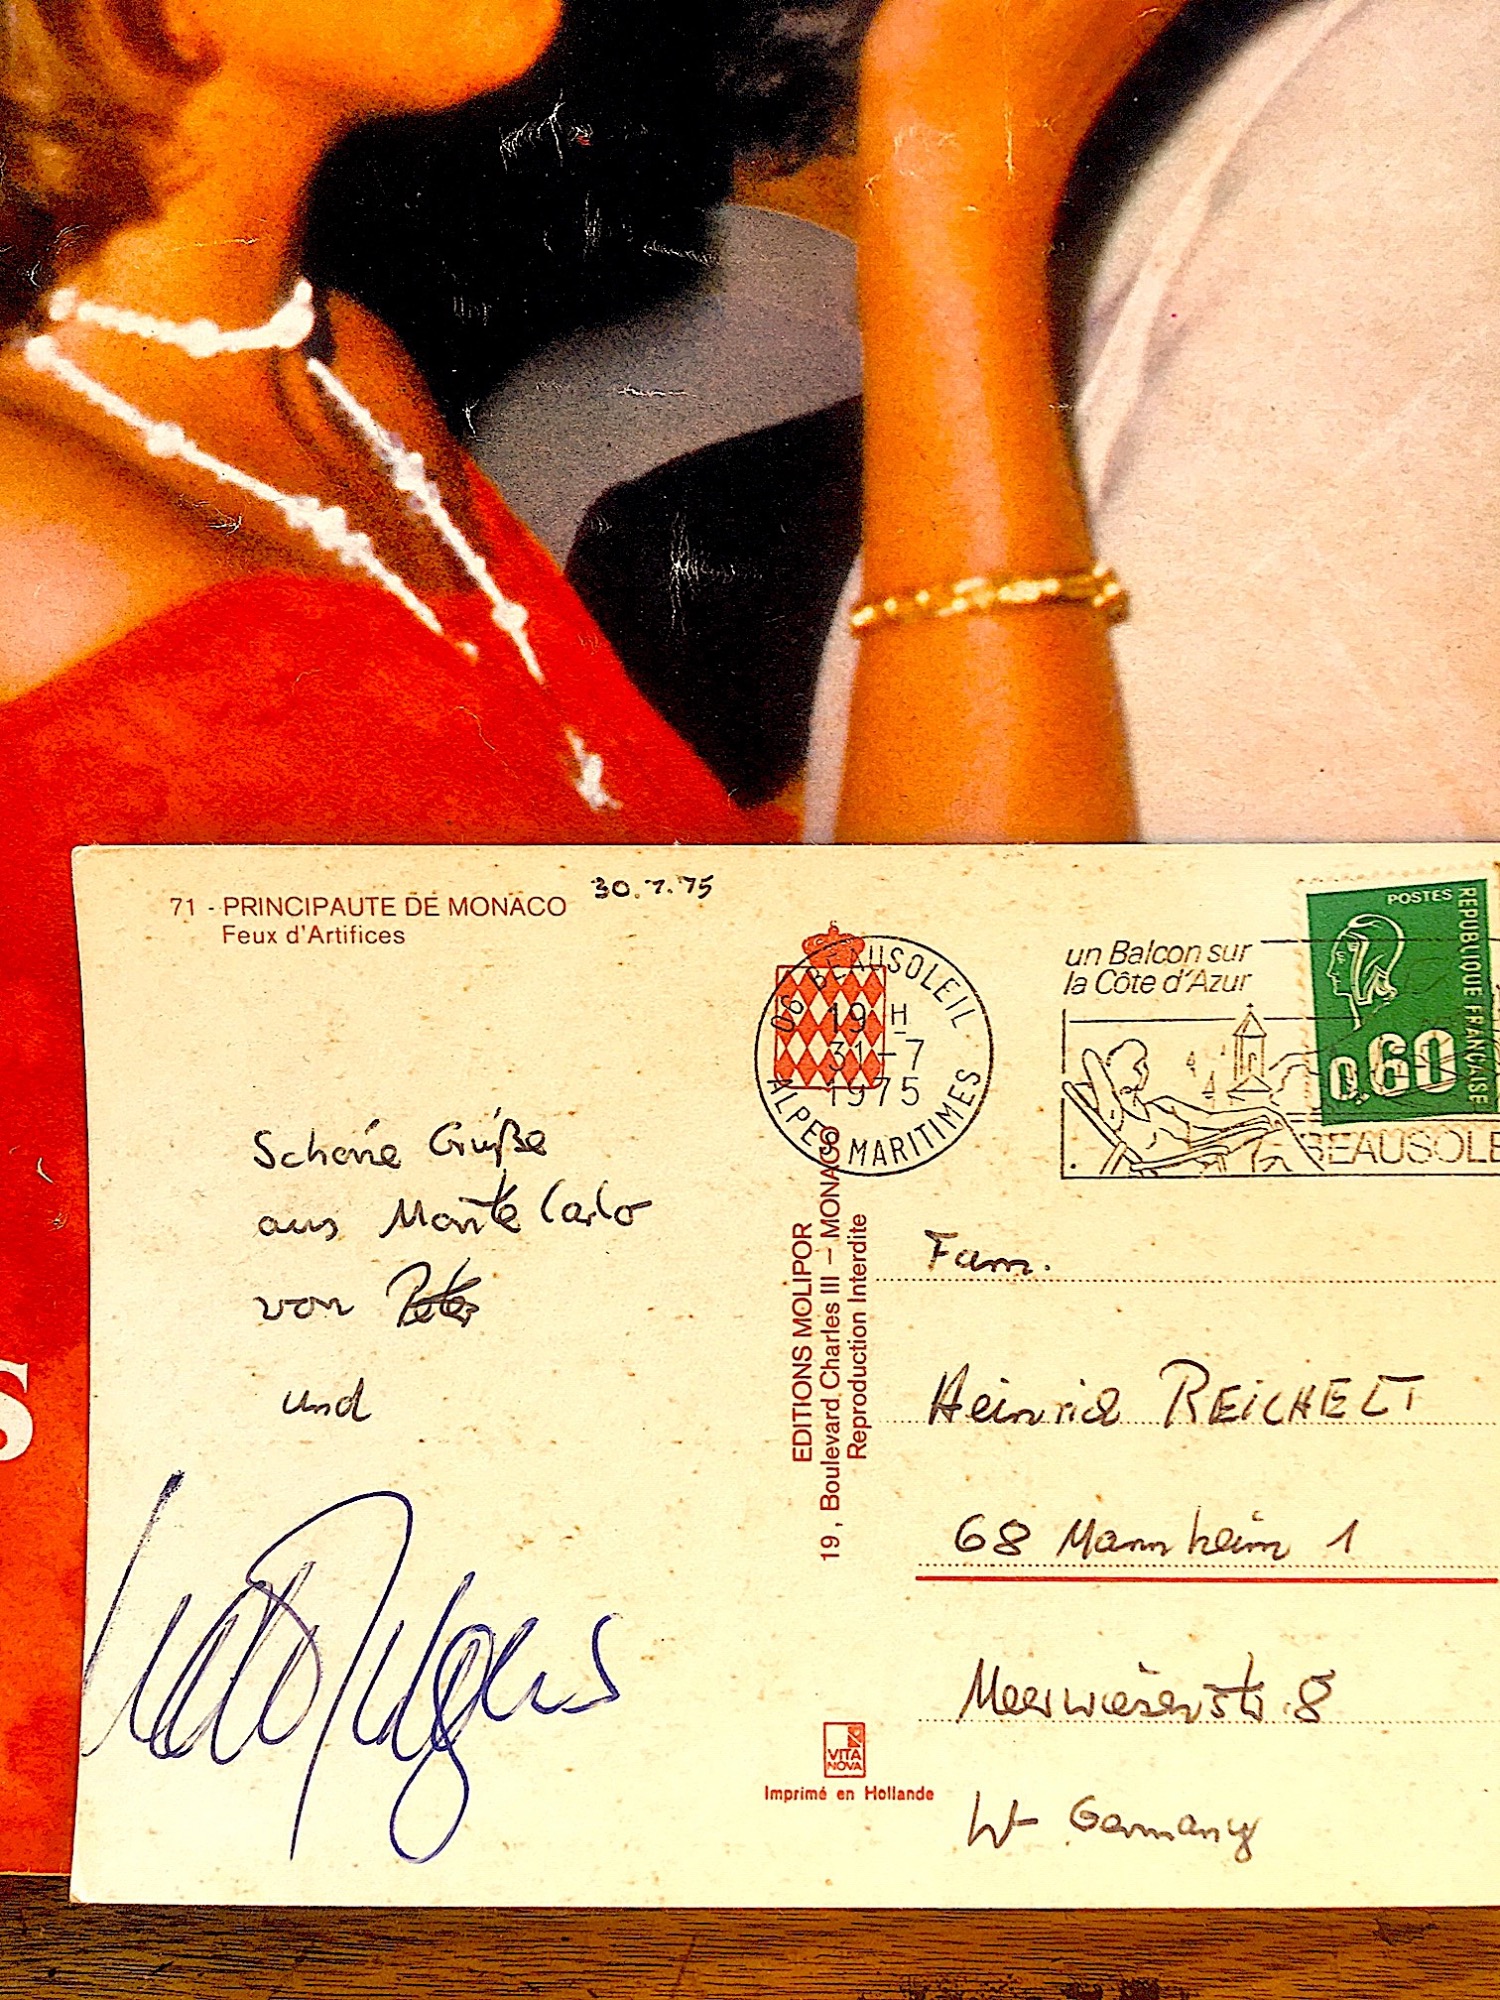 71 - PRINCIPAUTE DE MONACO
Feux d'Artifices
30.7.75
06 BEAUSOLEIL
19 H
31-7
1975
ALPES MARITIMES
un Balcon sur
la Côte d'Azur
BEAUSOLE
POSTES
REPUBLIQUE FRANÇAISE
0.60
Schöne Grüße
aus Monte Carlo
von Peter
und
EDITIONS MOLIPOR
19, Boulevard Charles III – MONACO
Reproduction Interdite
Fam.
Heinrich REICHELT
68 Mannheim 1
Meerwiesenstr. 8
W- Germany
VITA
NOVA
Imprimé en Hollande
S